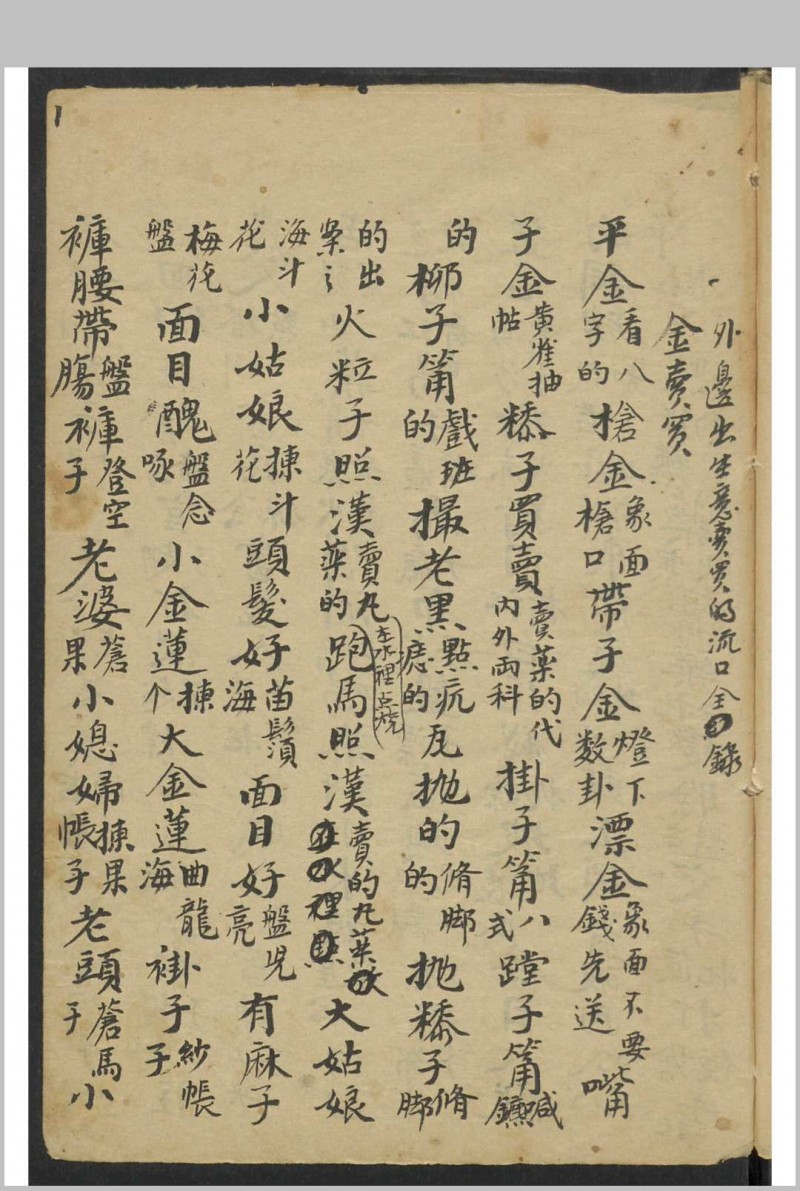 一外邊出生意賣買的流口全錄
金賣買
平金看八字的槍金象面槍口帶子金燈下数卦漂金象面不要錢先送嘴
子金黄雀抽帖 子買賣賣藥的代内外兩科掛子 八式蹚子
的柳子 戲班的撮老黑點疣痣的瓦抛的脩脚的抛 子脩脚
的出 火粒子照漢賣丸藥的跑馬照漢賣的丸藥在水裡点燒大姑娘
海斗花小姑娘揀斗花頭髮好苗鬚海面目好盤児亮有麻子
梅花盤面目醜盤念啄小金蓮揀个大金蓮曲龍海褂子紗帳子
褲腰帶盤腸褲子登空老婆蒼果小媳婦揀果帳子老頭子蒼馬小
1